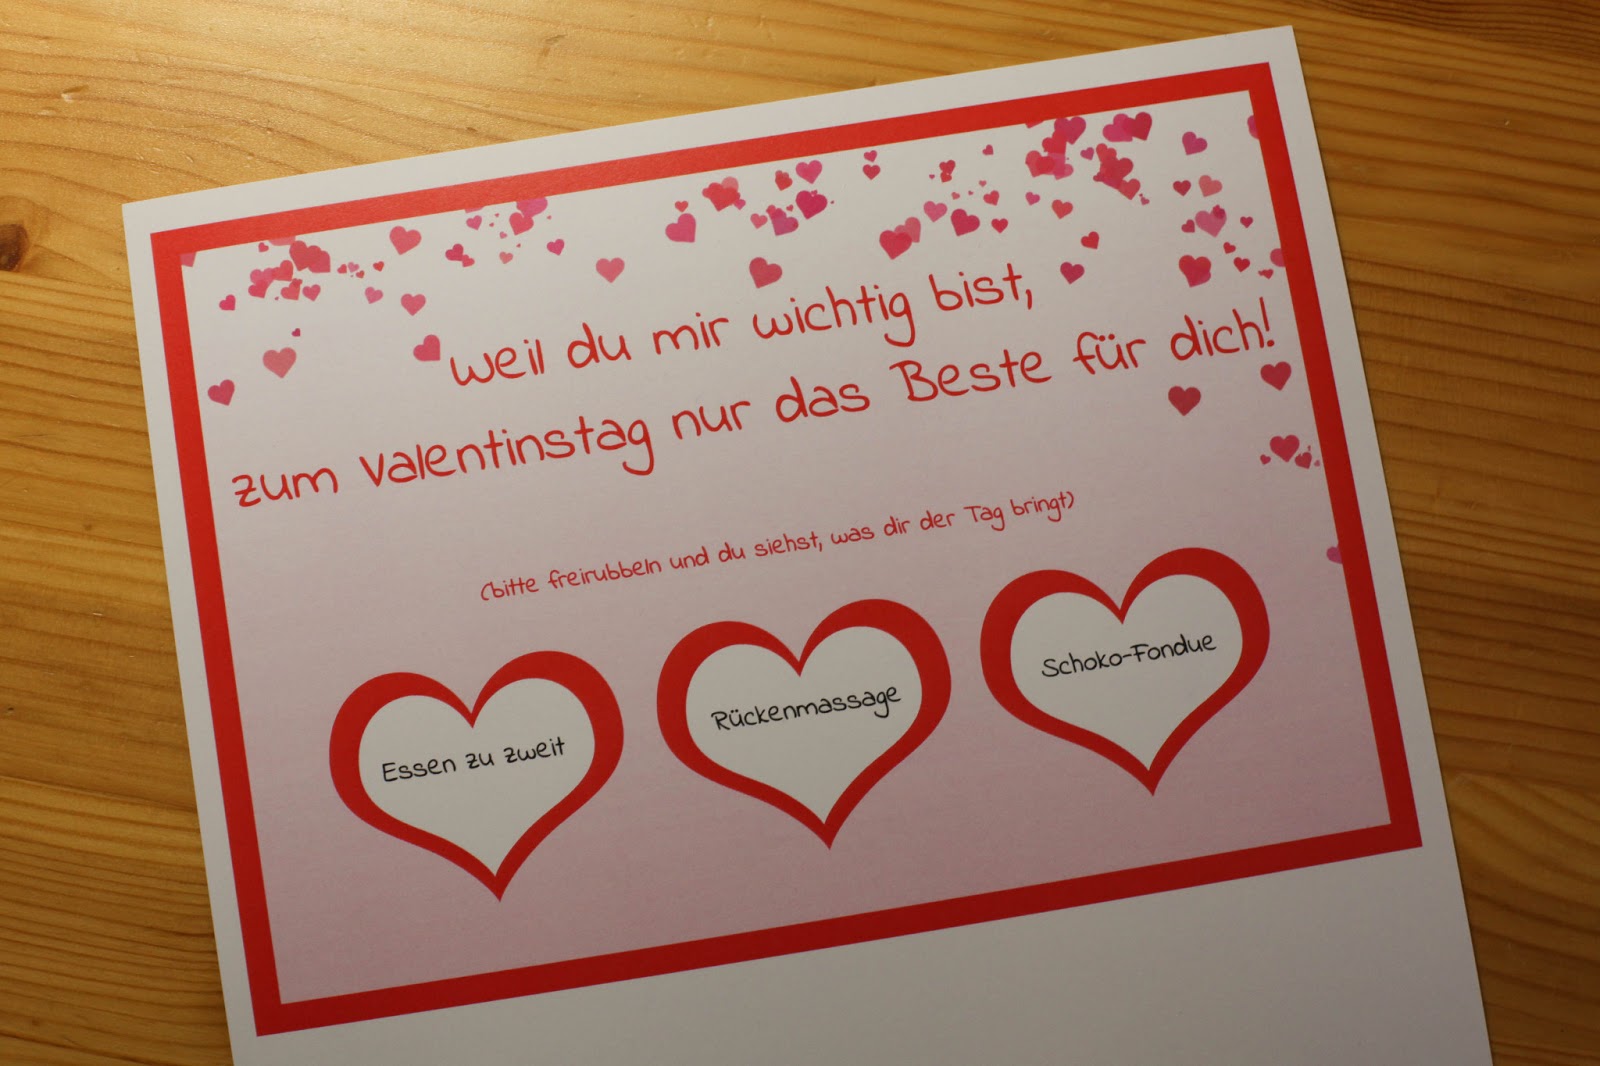 weil du mir wichtig bist,
zum Valentinstag nur das Beste für dich!
(bitte freirubbeln und du siehst, was dir der Tag bringt)
Essen zu zweit
Rückenmassage
Schoko-Fondue